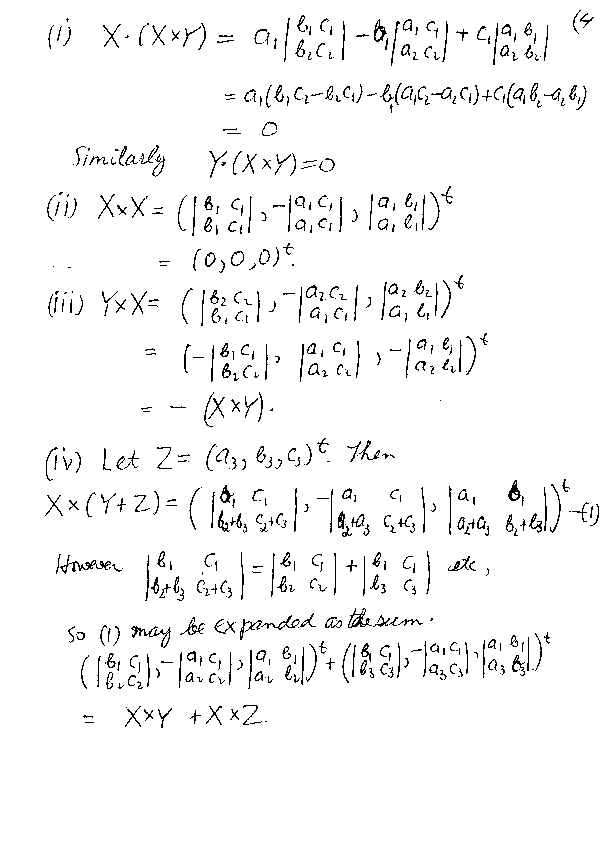 (4
(i) X·(X×Y) = a₁|b₁ c₁; b₂ c₂| − b₁|a₁ c₁; a₂ c₂| + c₁|a₁ b₁; a₂ b₂|
= a₁(b₁c₂−b₂c₁)−b₁(a₁c₂−a₂c₁)+c₁(a₁b₂−a₂b₁)
= 0
Similarly Y·(X×Y)=0
(ii) X×X = (|b₁ c₁; b₁ c₁|, −|a₁ c₁; a₁ c₁|, |a₁ b₁; a₁ b₁|)ᵗ
= (0,0,0)ᵗ.
(iii) Y×X = (|b₂ c₂; b₁ c₁|, −|a₂ c₂; a₁ c₁|, |a₂ b₂; a₁ b₁|)ᵗ
= (−|b₁ c₁; b₂ c₂|, |a₁ c₁; a₂ c₂|, −|a₁ b₁; a₂ b₂|)ᵗ
= − (X×Y).
(iv) Let Z = (a₃, b₃, c₃)ᵗ. Then
X×(Y+Z) = (|b₁ c₁; b₂+b₃ c₂+c₃|, −|a₁ c₁; a₂+a₃ c₂+c₃|, |a₁ b₁; a₂+a₃ b₂+b₃|)ᵗ —(1)
However |b₁ c₁; b₂+b₃ c₂+c₃| = |b₁ c₁; b₂ c₂| + |b₁ c₁; b₃ c₃| etc,
So (1) may be expanded as the sum.
(|b₁ c₁; b₂ c₂|, −|a₁ c₁; a₂ c₂|, |a₁ b₁; a₂ b₂|)ᵗ + (|b₁ c₁; b₃ c₃|, −|a₁ c₁; a₃ c₃|, |a₁ b₁; a₃ b₃|)ᵗ
= X×Y + X×Z.